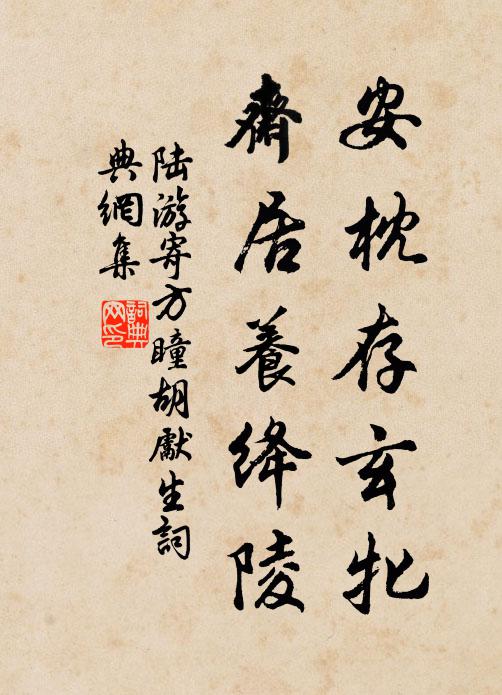 安枕存玄牝
齋居養絳陵
陸游寄方瞳胡獻生詞
典網集
詞典网印